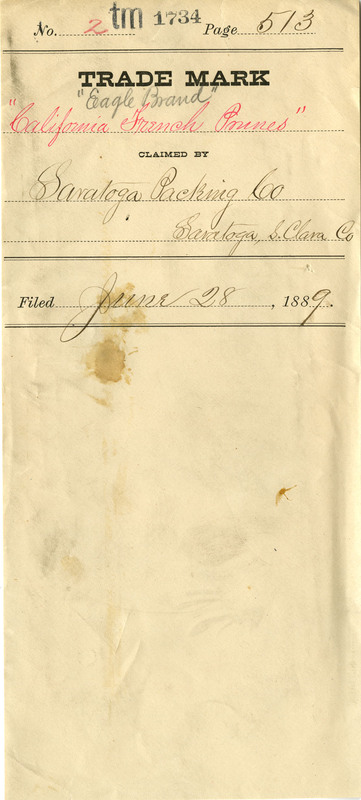 No. 2 tm 1734 Page 513
TRADE MARK
"Eagle Brand"
"California French Prunes"
CLAIMED BY
Saratoga Packing Co
Saratoga, S. Clara Co
Filed June 28, 1889.